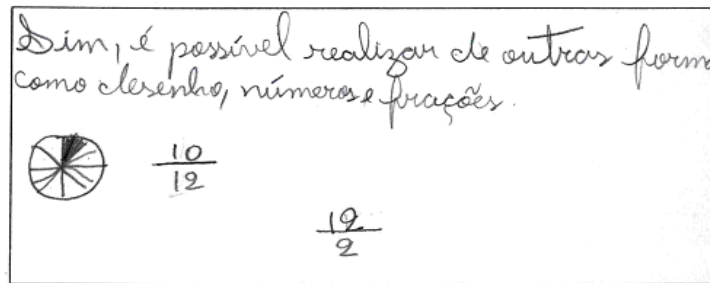 Sim, é possível realizar de outras form
como desenho, números e frações.
10
12
12
2